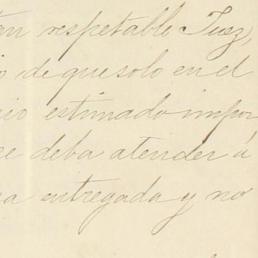 tan respetable Juez,
o de que solo en el
rio estimado impor
ce deba atender á
a entregada y no